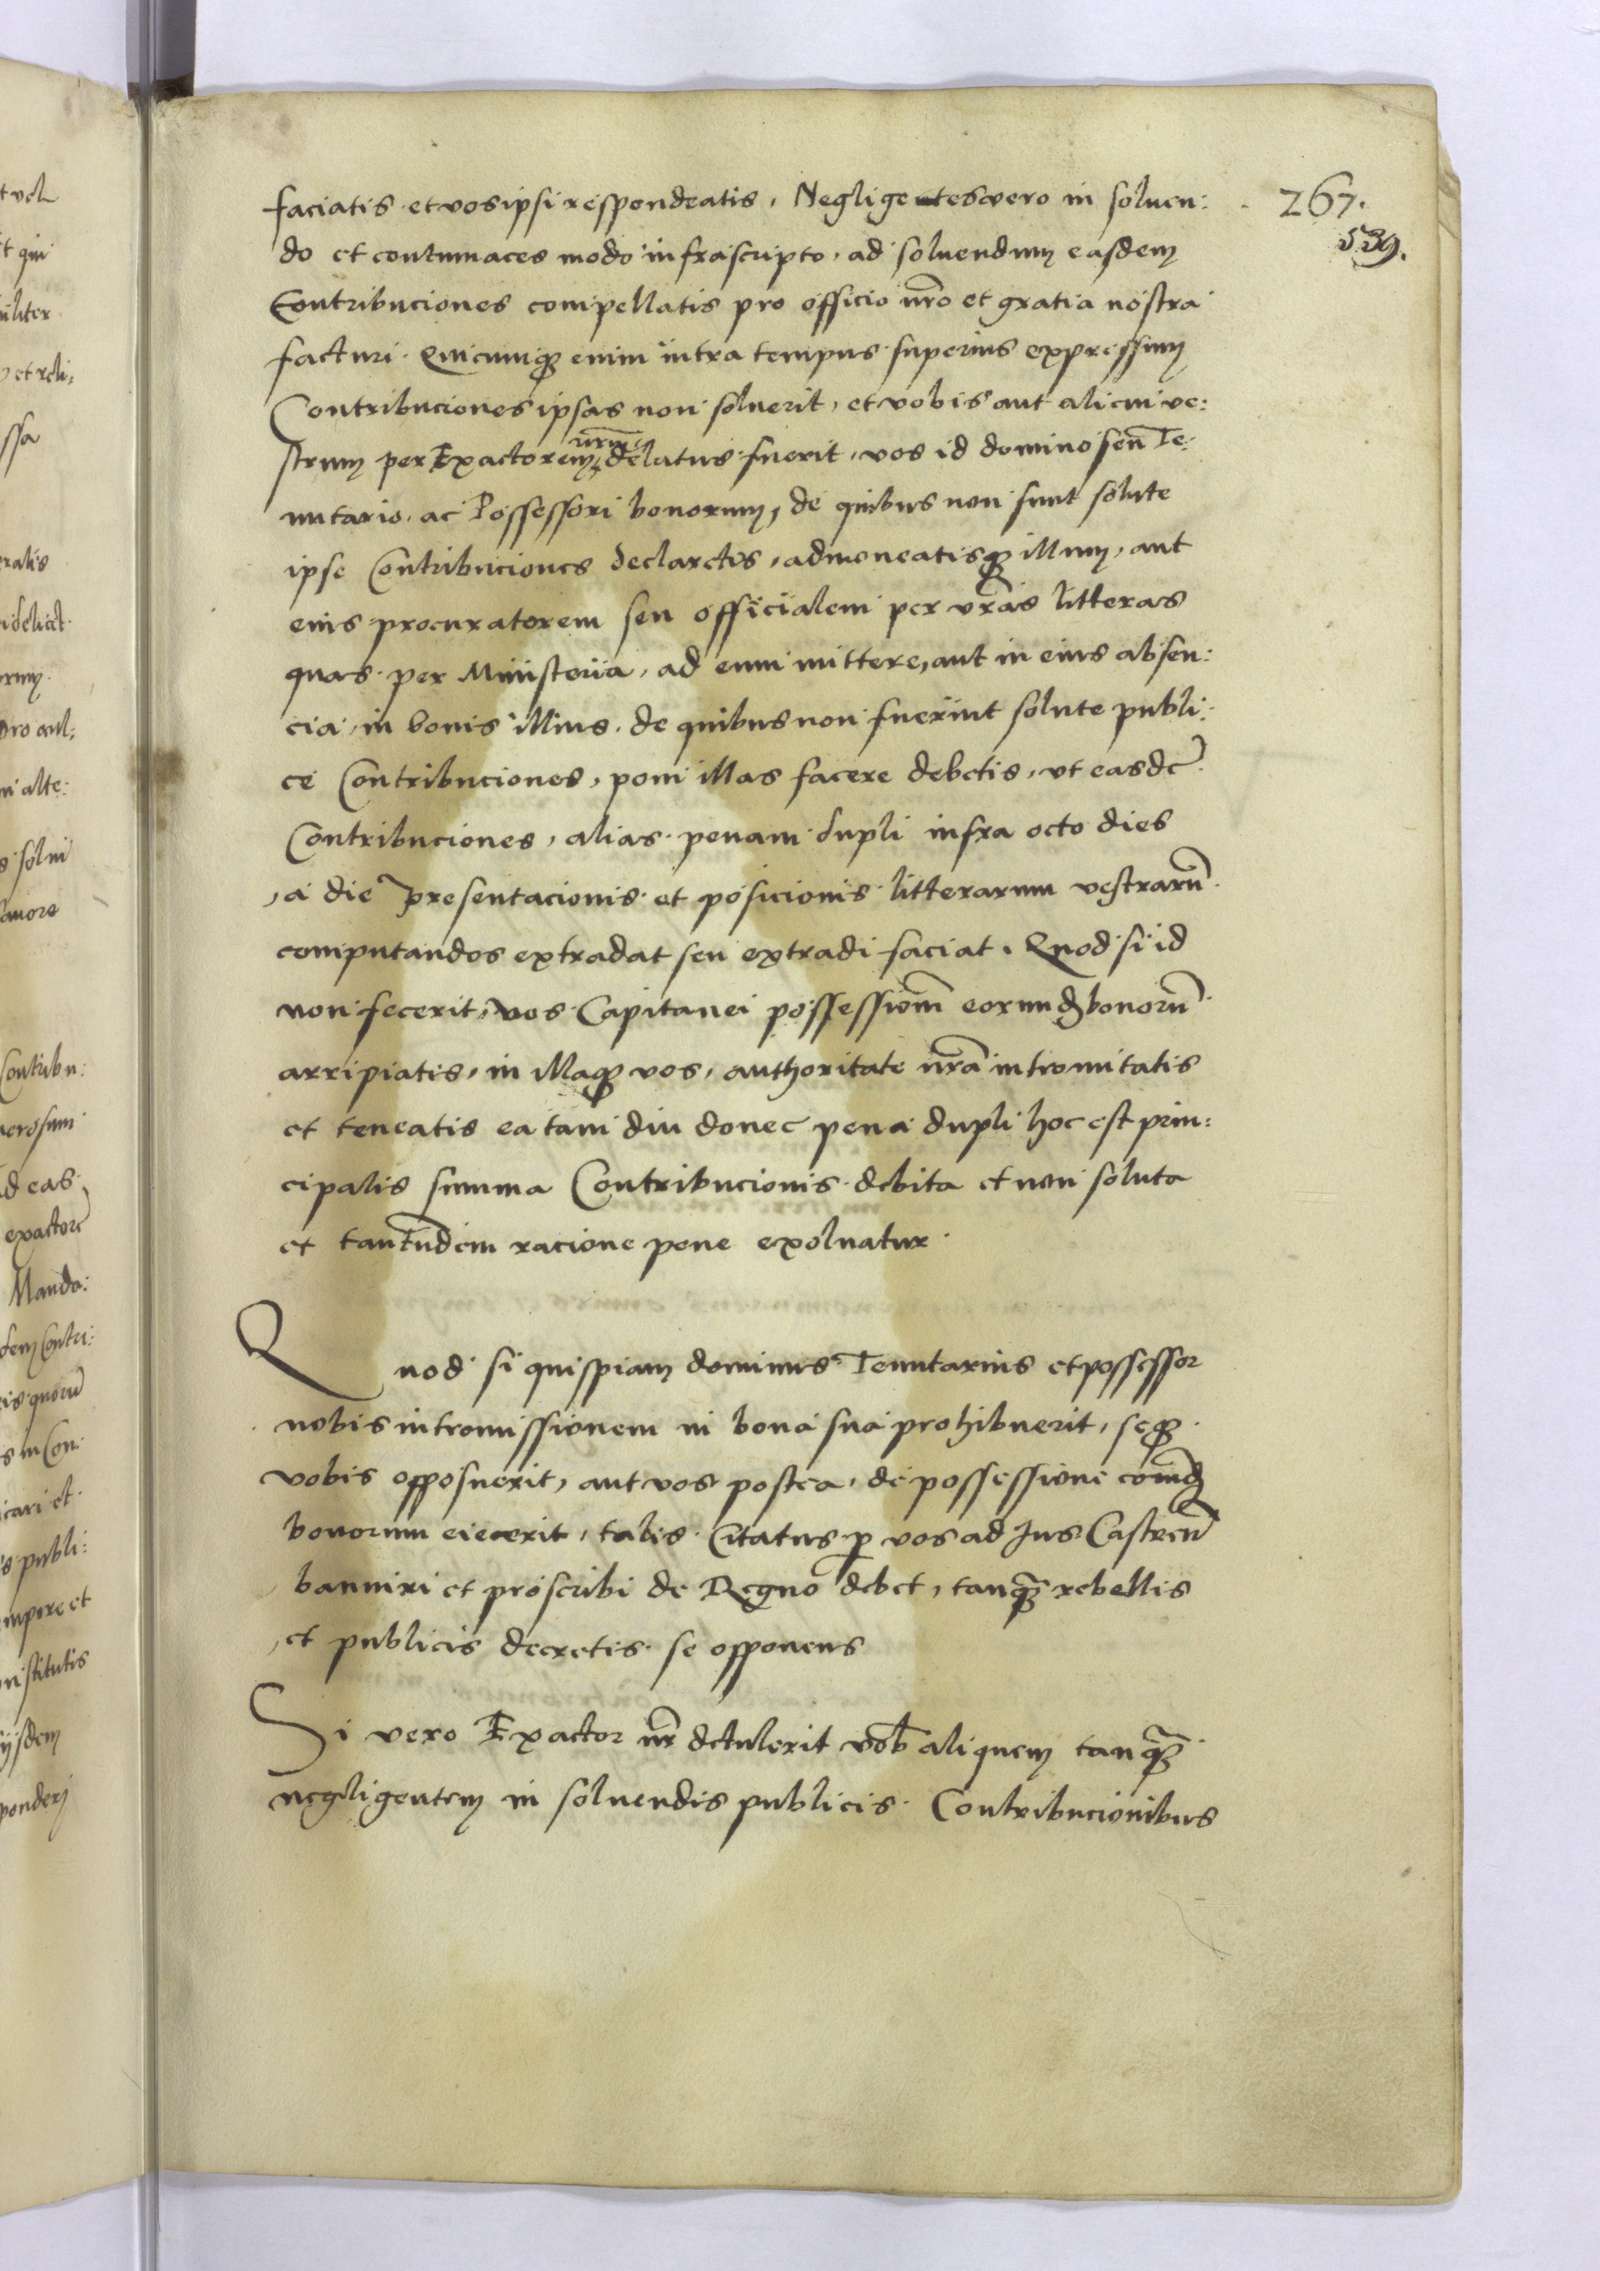 267.
539.
faciatis et vos ipsi respondeatis, Negligentes vero in soluen:
do et contumaces modo infrascripto, ad soluendum easdem
Contribuciones compellatis pro officio vr̃o et gratia nostra
facturi. Quicumqꝫ enim intra tempus superius expressum
Contribuciones ipsas non soluerit, et vobis aut alicui ve:
strum per Exactorem nr̃m delatus fuerit, vos id domino seu Te:
nutario, ac Possessori bonorum, de quibus non sunt solute
ipse Contribuciones declaretis, admoneatisqꝫ illum, aut
eius procuratorem seu officialem per vr̃as litteras
quas per Ministeria, ad eum mittere, aut in eius absen:
cia, in bonis illius, de quibus non fuerint solute publi:
ce Contribuciones, poni illas facere debetis, vt easdē
Contribuciones, alias penam dupli infra octo dies
a die presentacionis et posicionis litterarum vestrarū
computandos extradat seu extradi faciat. Quod si id
non fecerit, vos Capitanei possessionem eorundē bonorū
arripiatis, in illaqꝫ vos, authoritate nr̃a intromitatis
et teneatis ea tam diu donec pena dupli hoc est prin:
cipalis summa Contribucionis debita et non soluta
et tantundem racione pene exoluatur.
Quod si quispiam dominus Tenutarius et possessor
vobis intromissionem in bona sua prohibuerit, seqꝫ
vobis opposuerit, aut vos postea, de possessione eorundē
bonorum eiecerit, talis Citatus ꝑ vos ad Ius Castreñ
banniri et proscribi de Regno debet, tanqꝫ rebellis
et publicis decretis se opponens
Si vero Exactor nr̃ detulerit vob̃ aliquem tanqꝫ
negligentem in soluendis publicis Contribucionibus